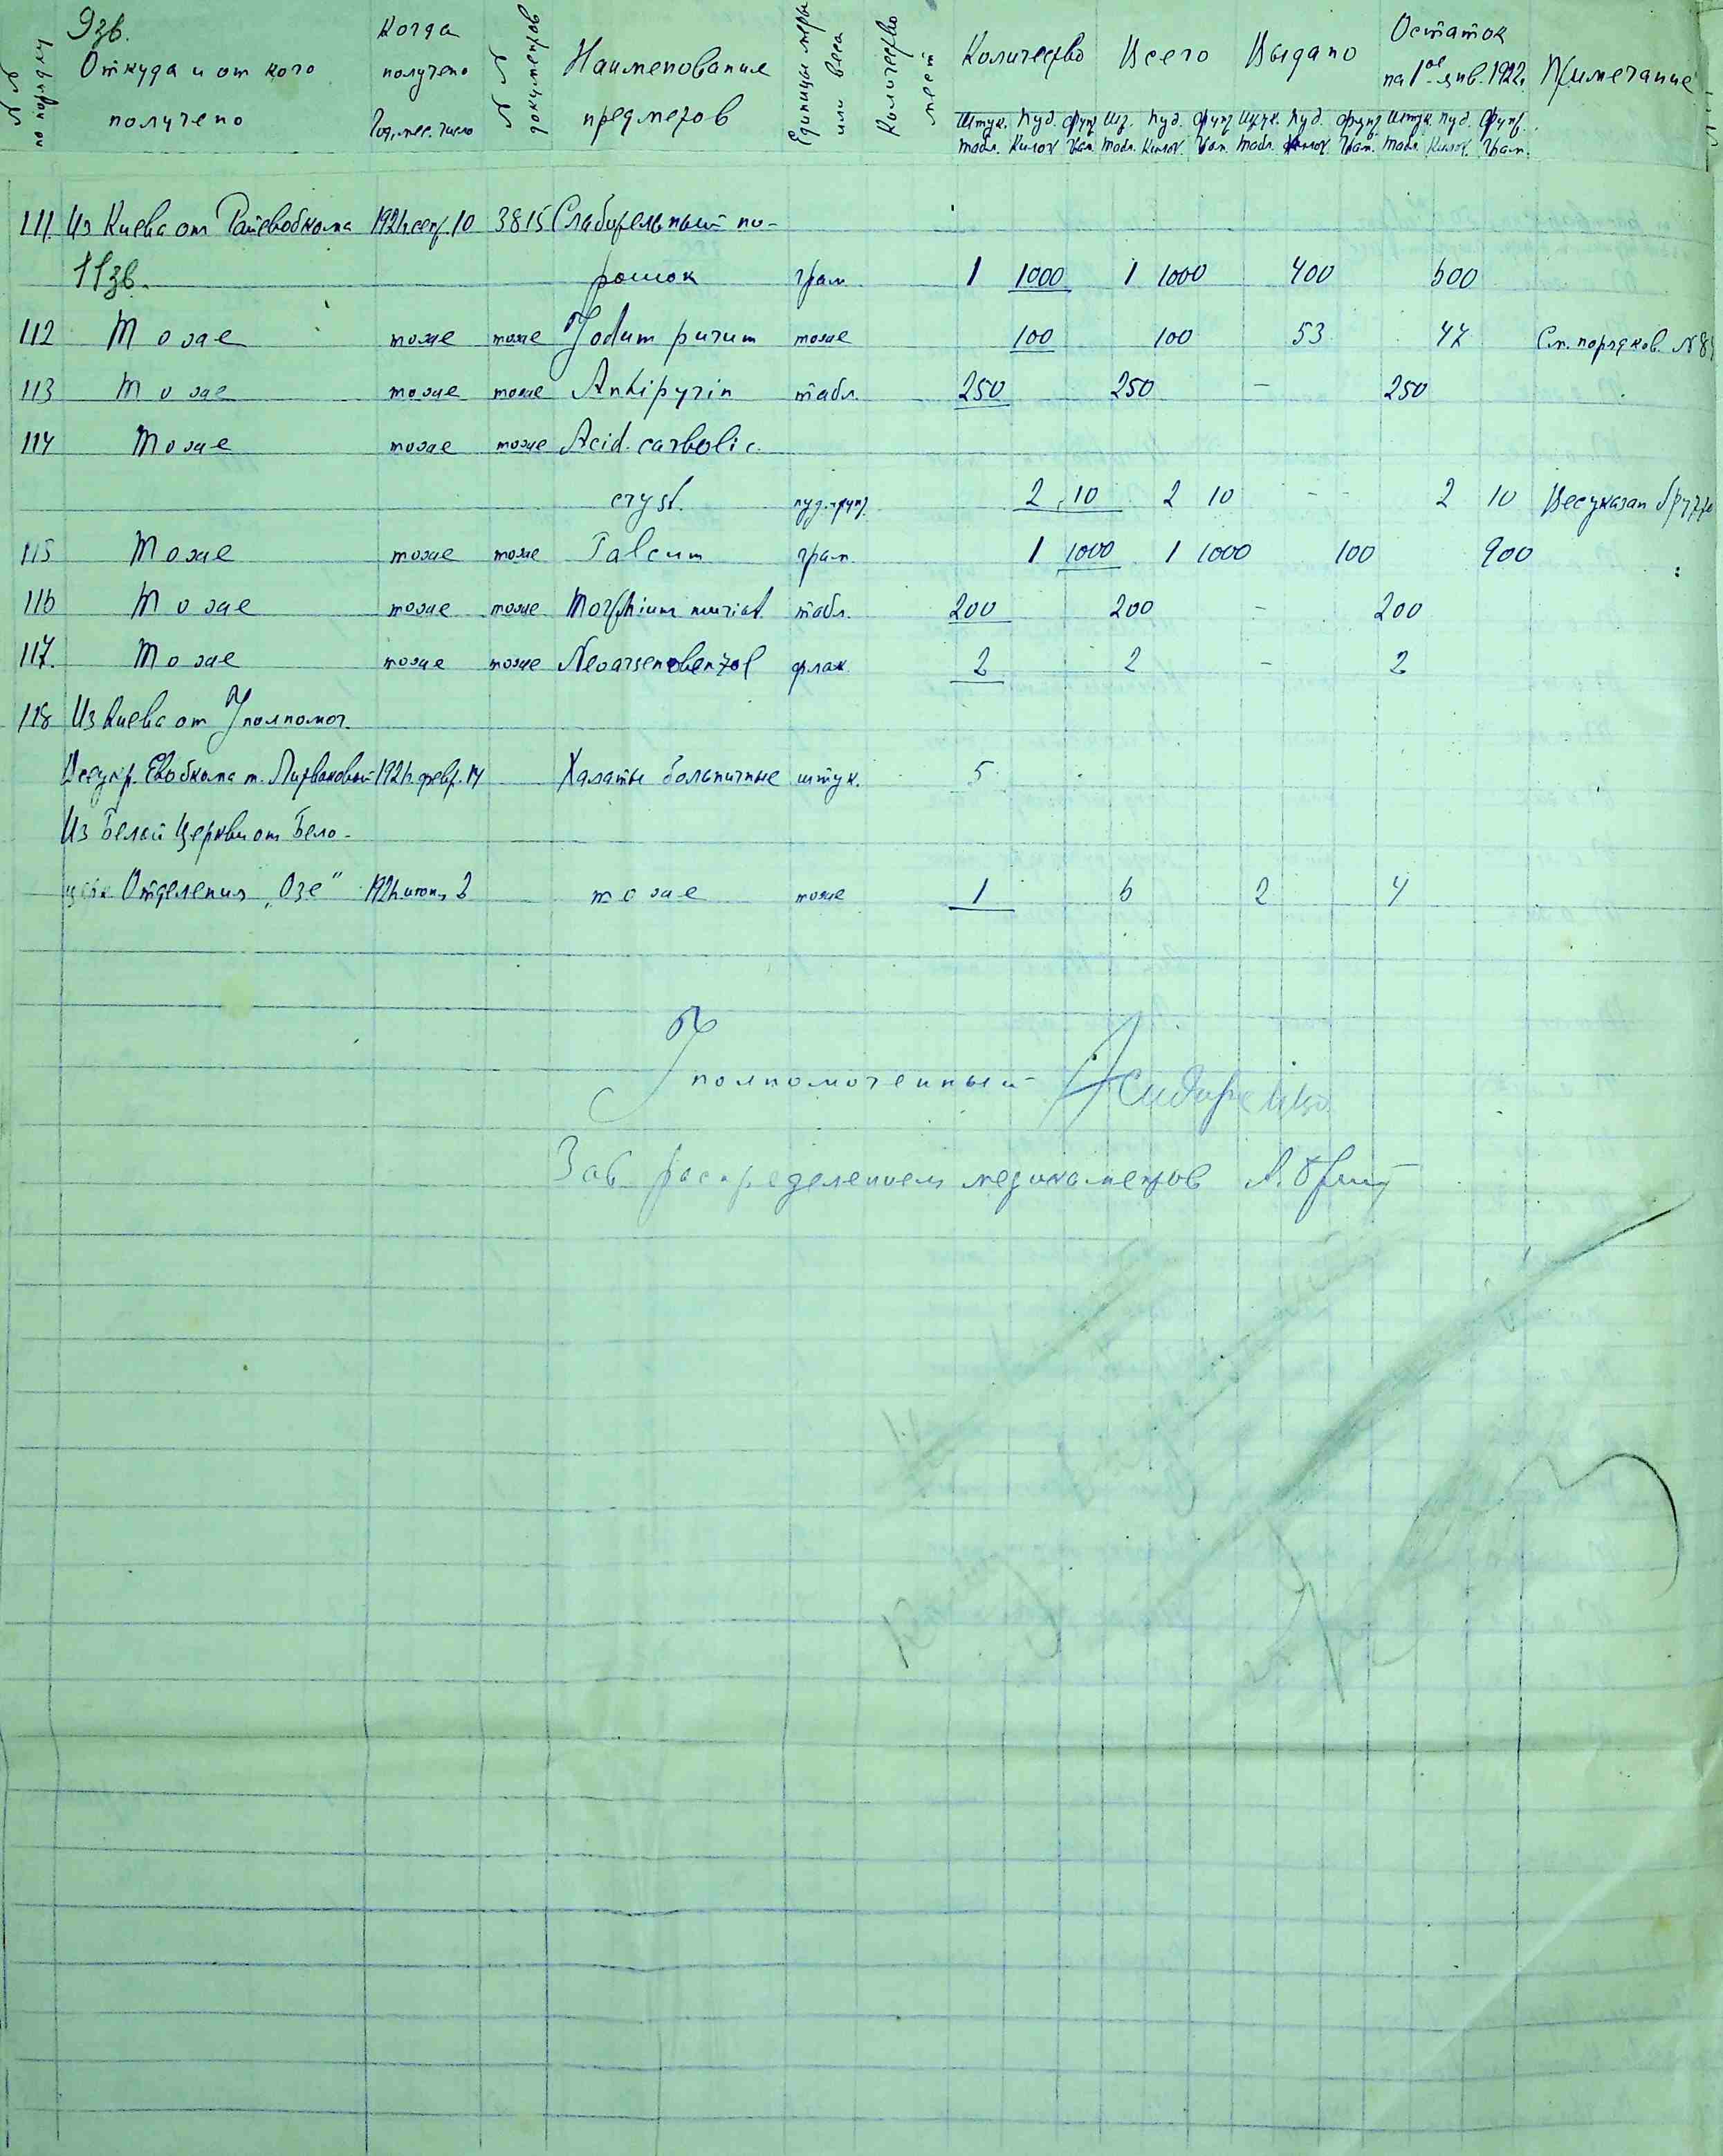 9 зв.
№№ по порядку Откуда и от кого получено Когда получено Год, мес. число №№ документов Наименование предметов Единицы меры или веса Количество мест Количество Всего Выдано Остаток на 1ое янв. 1922 г. Примечание
Штук. Пуд. Фунт Шт. Пуд. Фунт Штук. Пуд. Фунт Штук Пуд. Фунт.
Табл. Килог. Грам. Табл. Килог. Грам. Табл. Килог. Грам. Табл. Килог. Грам.
111. Из Киева от Райевобкома 1921 г. сент. 10 3815 Слабительный по-
11 зв. рошок грам. 1 1000 1 1000 400 600
112 Тоже тоже тоже Jodum purum тоже 100 100 53 47 См. порядков. №
113 Тоже тоже тоже Antipyrin табл. 250 250 – 250
114 Тоже тоже тоже Acid. carbolic.
cryst. пуд. фунт. 2 10 2 10 – 2 10 Вес указан брутто
115 Тоже тоже тоже Talcum грам. 1 1000 1 1000 100 900
116 Тоже тоже тоже Morphium muriat. табл. 200 200 – 200
117. Тоже тоже тоже Neoarsenobenzol флак. 2 2 – 2
118 Из Киева от Уполномоч.
Всеукр. Евобкома т. 1921 г. февр. 14 Халаты больничные штук. 5
Из Белой Церкви от Бело-
церк. Отделения „Озе" 1921 г. июня 2 тоже тоже 1 6 2 4
Уполномоченный
Зав распределением медикаментов